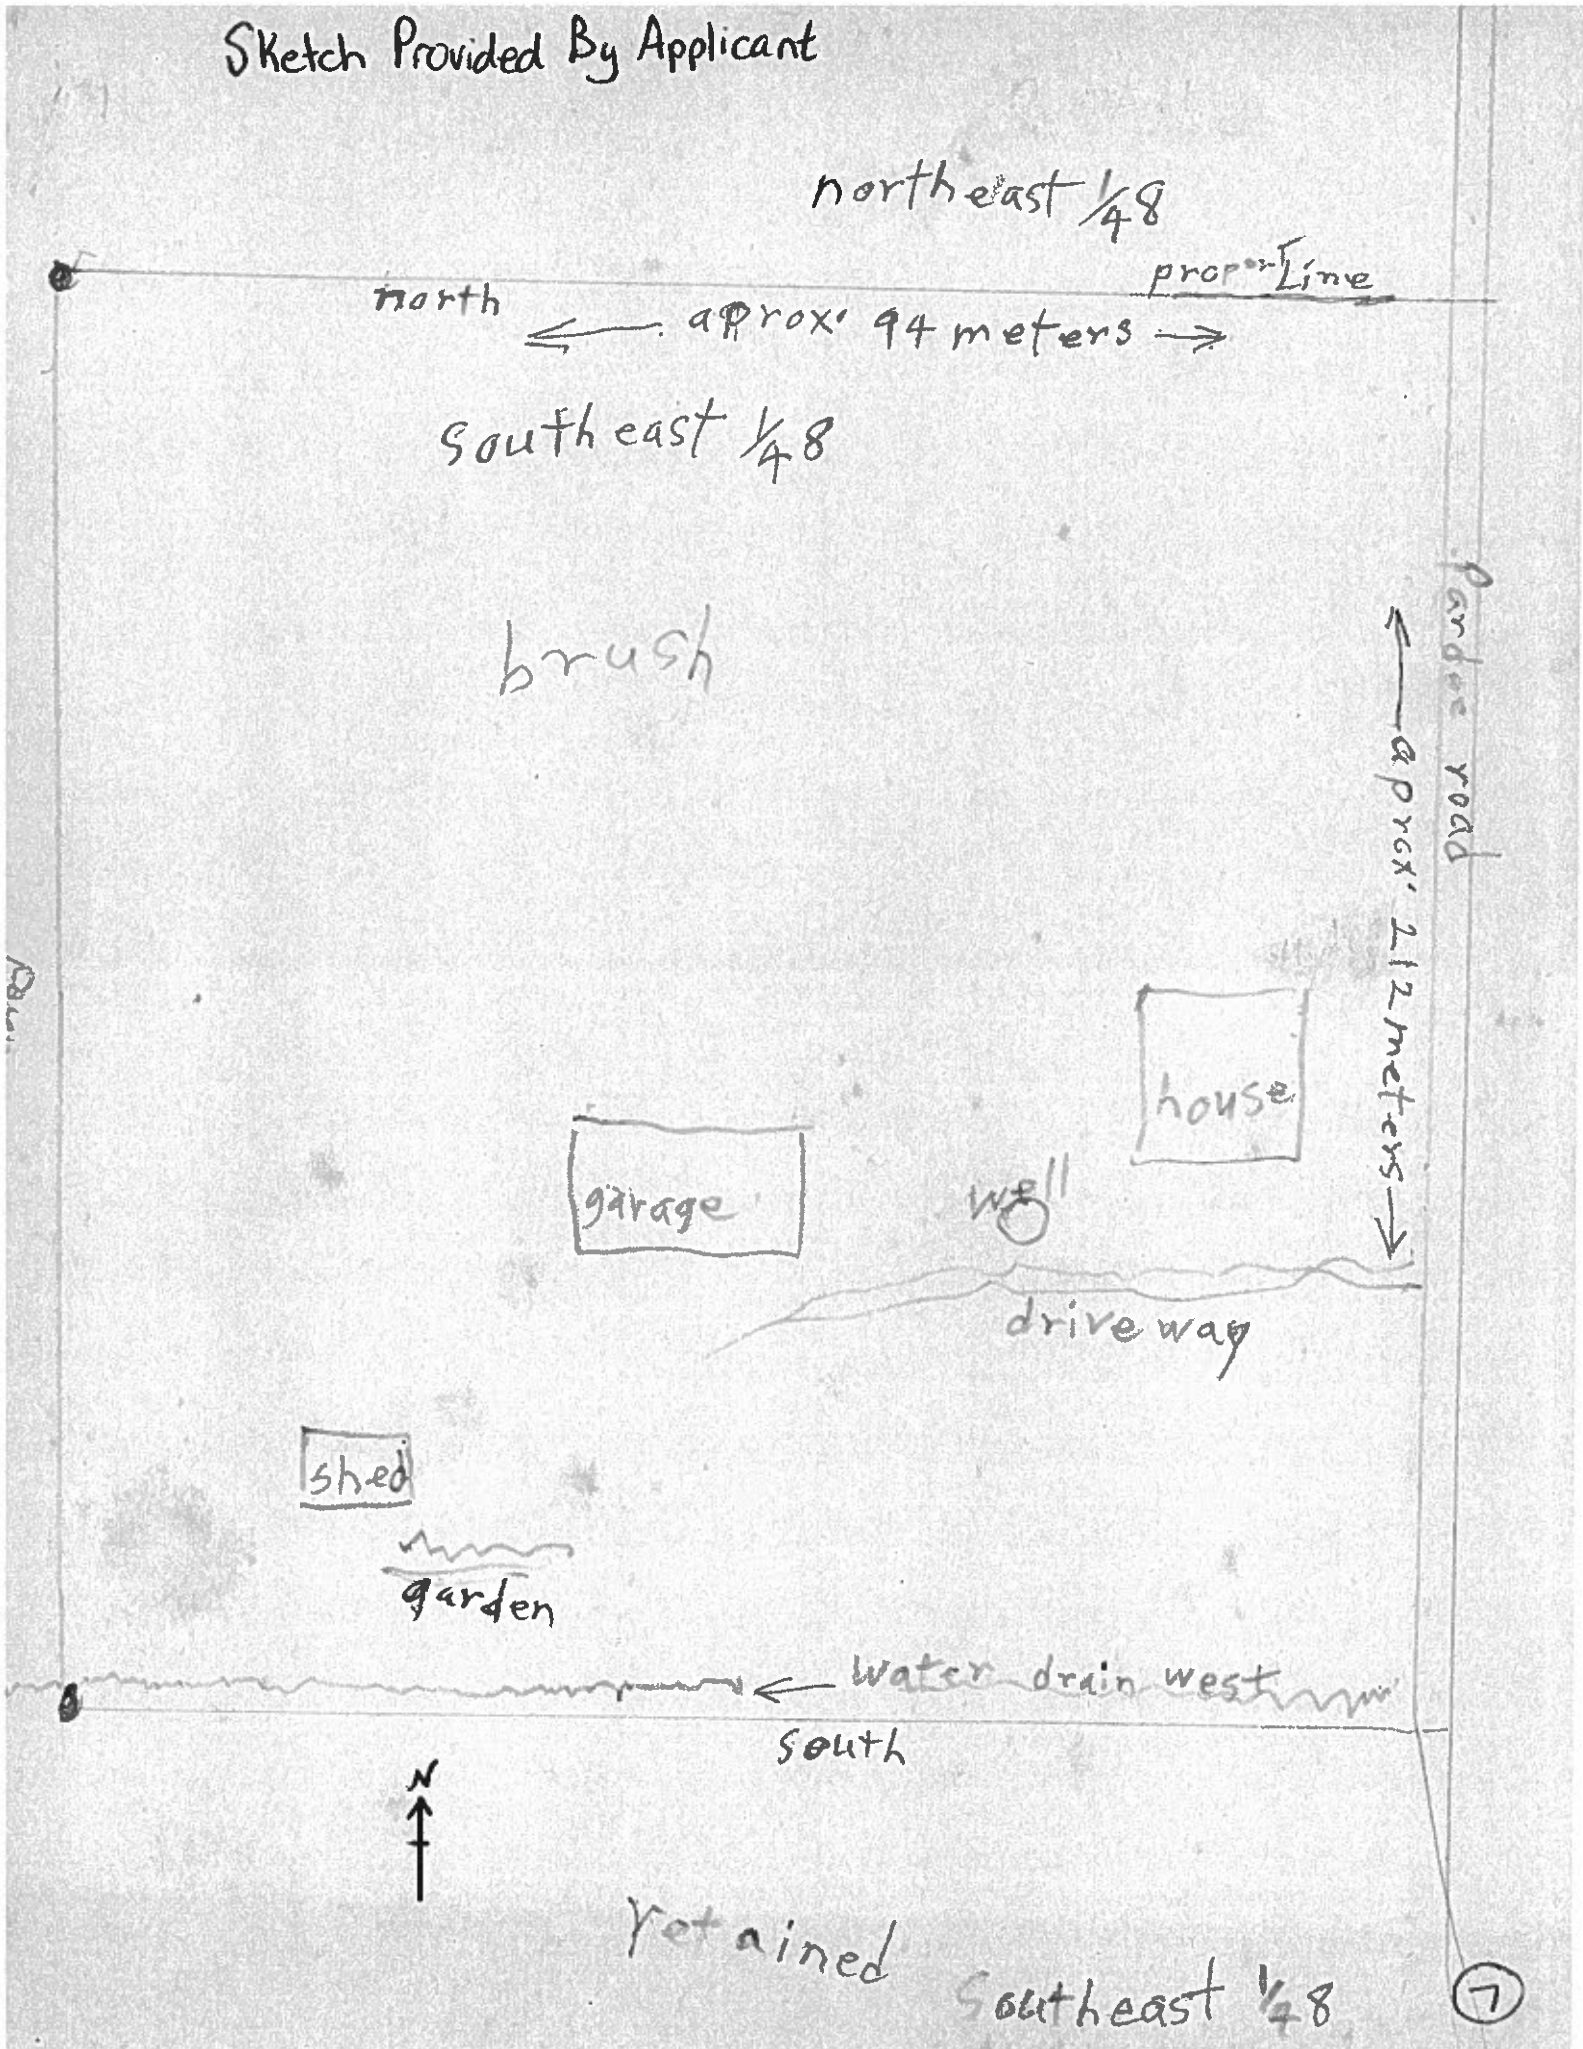 Sketch Provided By Applicant
northeast 1/4 8
proper Line
north
aprox. 94 meters
southeast 1/4 8
brush
Pardoe road
aprox. 212 meters
house
garage
well
driveway
shed
garden
water drain west
south
N
retained
Southeast 1/4 8
7